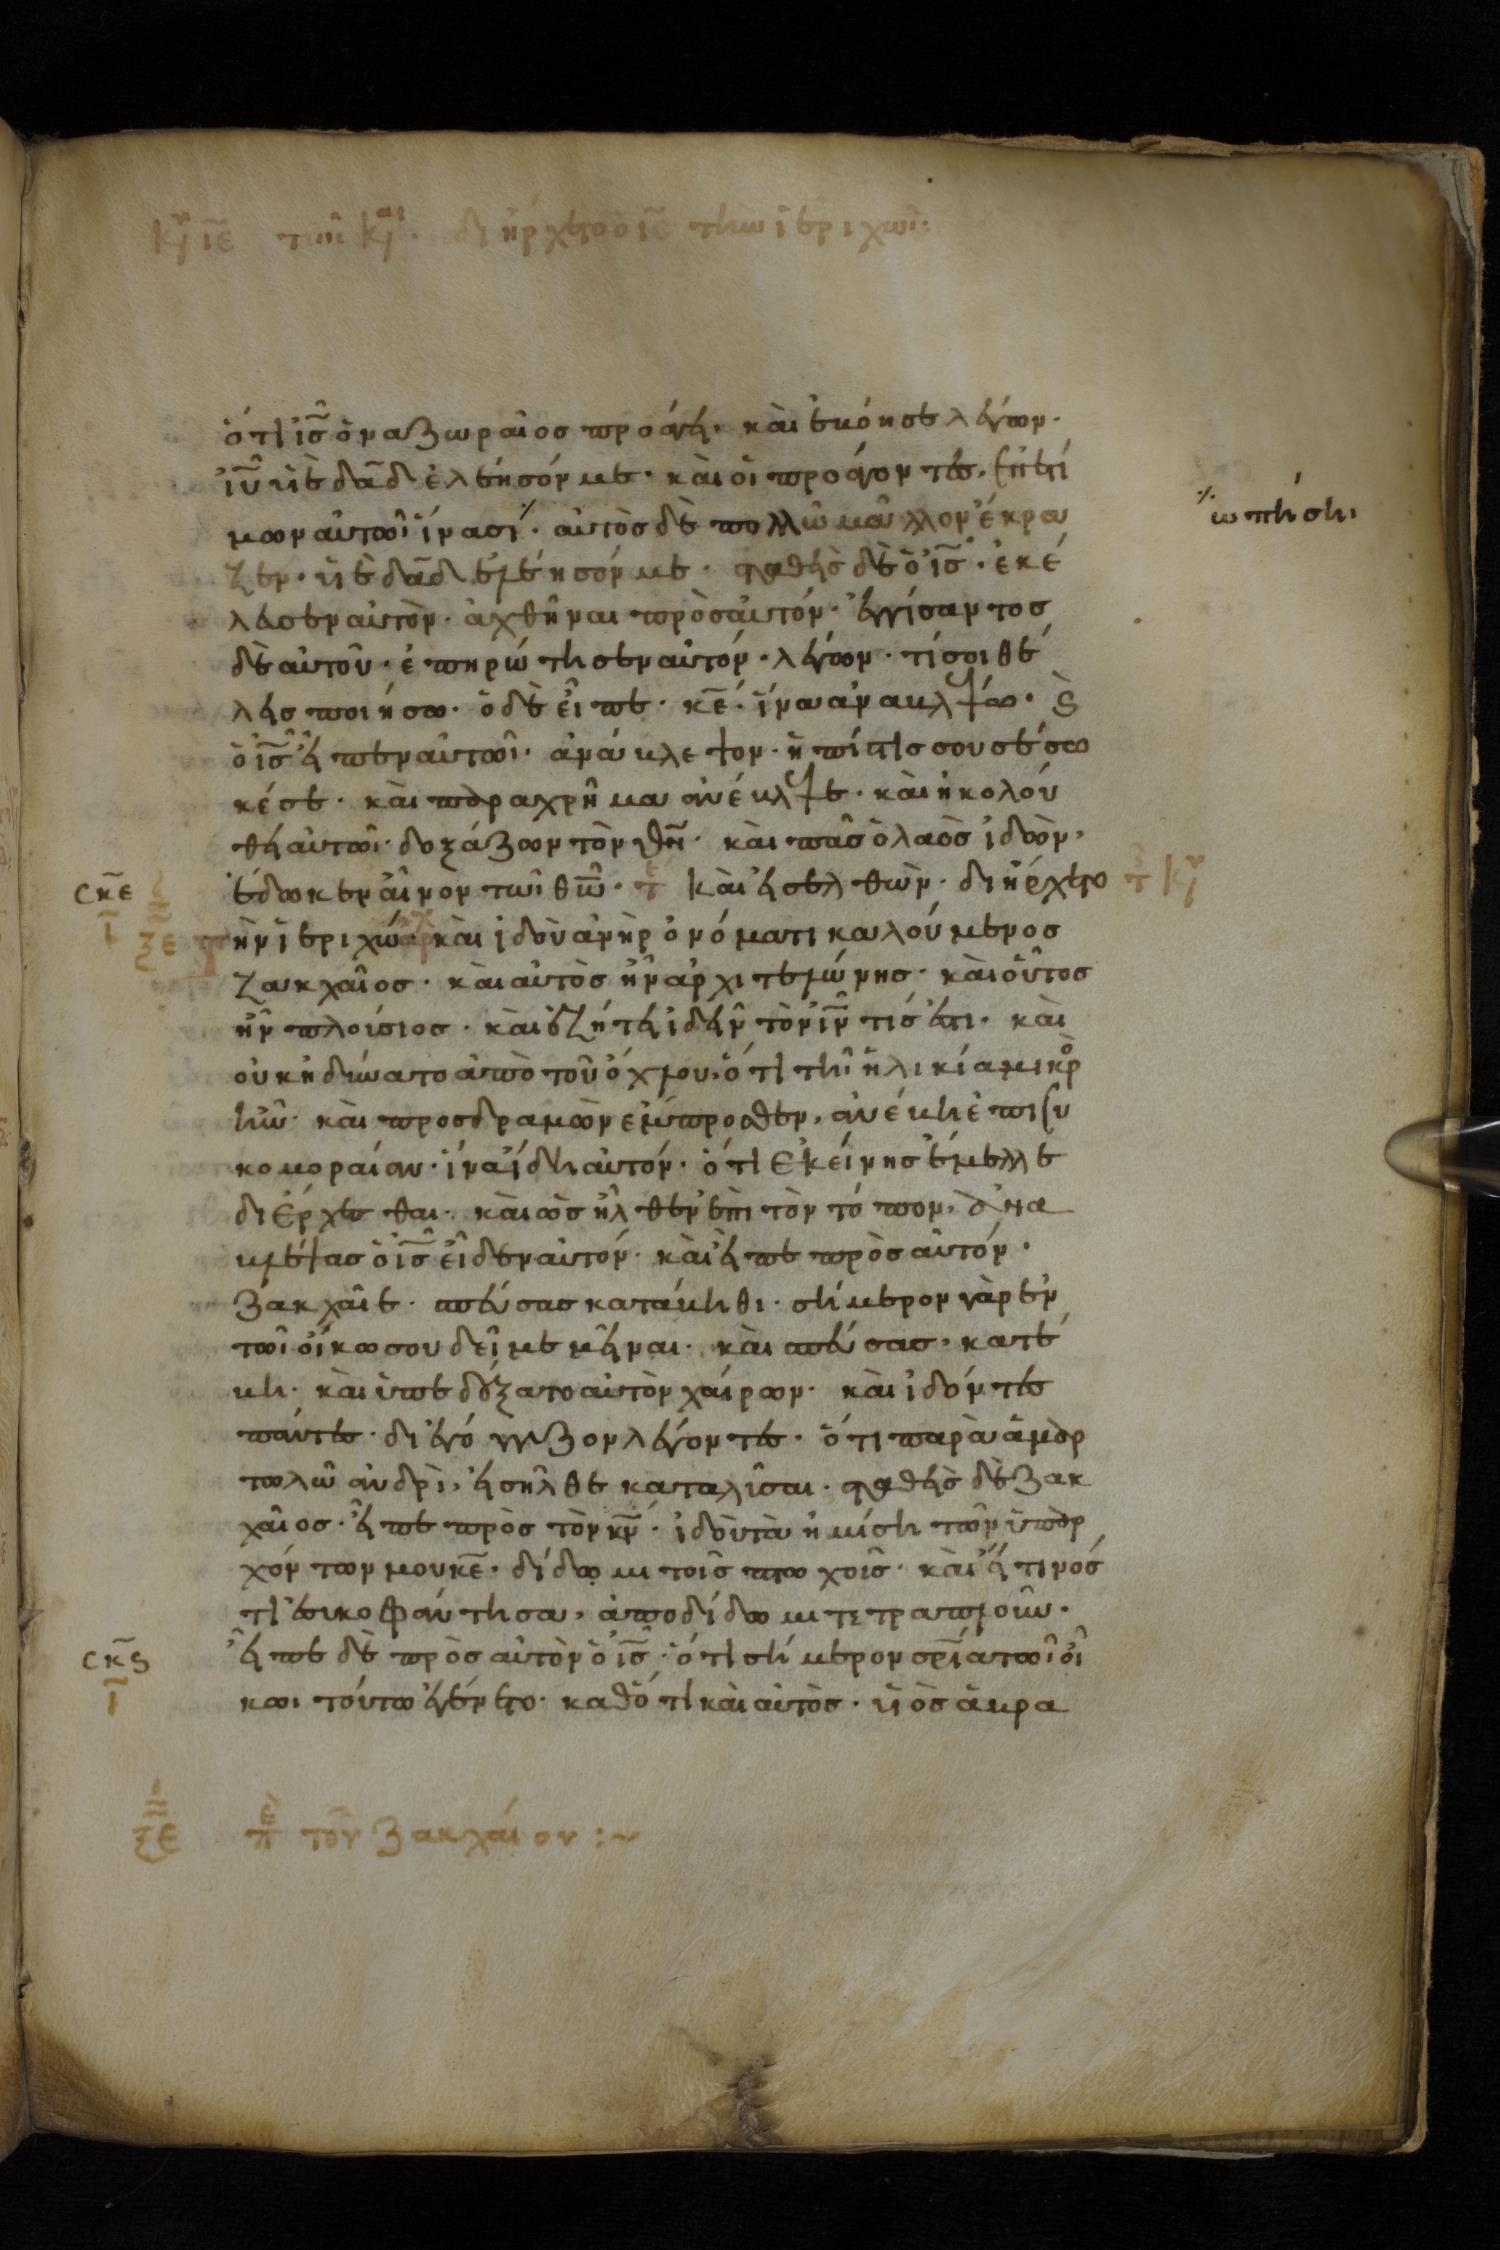 κυ ιε τῶι και. διήρχετο ο ις την ιεριχώ:
ὅτι ις ὁ ναζωραῖος προάγει. καὶ ἐβόησε λέγων.
ιυ υἱὲ δαδ ἐλέησόν με. καὶ οἱ προάγοντες, ἐπετί
μων αὐτῶι ἵνα σι ⁒ αὐτὸς δὲ πολλῶ μᾶλλον ἔκρα
⁒ ωπήση,
ζεν. υἱὲ δαδ ἐλέησόν με. σταθεὶς δὲ ὁ ις. ἐκέ
λευσεν αὐτὸν. ἀχθῆναι πρὸς αὐτόν. ἐγγίσαντος
δὲ αὐτοῦ. ἐπηρώτησεν αὐτόν. λέγων. τί σοι θέ
λεις ποιήσω. ὁ δὲ εἶπε. κε. ἵνα ἀναβλέψω. κ
ὁ ις εἶπεν αὐτῶι. ἀνάβλεψον. ἡ πίστις σου σέσω
κέ σε. καὶ παραχρῆμα ἀνέβλεψε. καὶ ἠκολού
θει αὐτῶι. δοξάζων τὸν θν. καὶ πᾶς ὁ λαὸς ἰδὼν,
σκε ι
ἔδωκεν αἶνον τῶι θω. τε καὶ εἰσελθὼν. διήρχετο
ξε
τὴν ἱεριχώ αρχ καὶ ἰδοὺ ἀνὴρ ὀνόματι καλούμενος
ζακχαῖος. καὶ αὐτὸς ἦν ἀρχιτελώνης. καὶ οὗτος
ἦν πλούσιος. καὶ ἐζήτει ἰδεῖν τὸν ιν τίς ἐστι. καὶ
οὐκ ἠδύνατο ἀπὸ τοῦ ὄχλου, ὅτι τῆ ἡλικία μικρο
ἦν. καὶ προσδραμὼν ἔμπροσθεν, ἀνέβη ἐπι συ
κομοραίαν. ἵνα ἴδη αὐτόν. ὅτι ἐκείνης ἔμελλε
διέρχεσθαι. καὶ ὡς ἦλθεν ἐπὶ τὸν τόπον, ἀνα
βλέψας ὁ ις εἶδεν αὐτόν. καὶ εἶπε πρὸς αὐτόν.
ζακχαῖε. σπεύσας κατάβηθι. σήμερον γὰρ ἐν
τῶι οἴκω σου δεῖ με μεῖναι. καὶ σπεύσας, κατέ
βη. καὶ ὑπεδέξατο αὐτὸν χαίρων. καὶ ἰδόντες
πάντες. διεγόγγυζον λέγοντες. ὅτι παρὰ ἁμαρ
τωλῶ ἀνδρὶ, εἰσῆλθε καταλῦσαι. σταθεὶς δὲ ζακ
χαῖος. εἶπε πρὸς τὸν κν. ἰδοὺ τὰ ἡμίση τῶν ὑπαρ
χόντων μου κε. δίδωμι τοῖς πτωχοῖς. καὶ εἴ τινός
τι ἐσυκοφάντησα, ἀποδίδωμι τετραπλοῦν.
σκς ι
εἶπε δὲ πρὸς αὐτὸν ὁ ις. ὅτι σήμερον σρια τῶι οἴ
κωι τούτω ἐγένετο. καθότι καὶ αὐτὸς. υἱὸς ἀβρα
ξε πε τον ζακχαίου :~